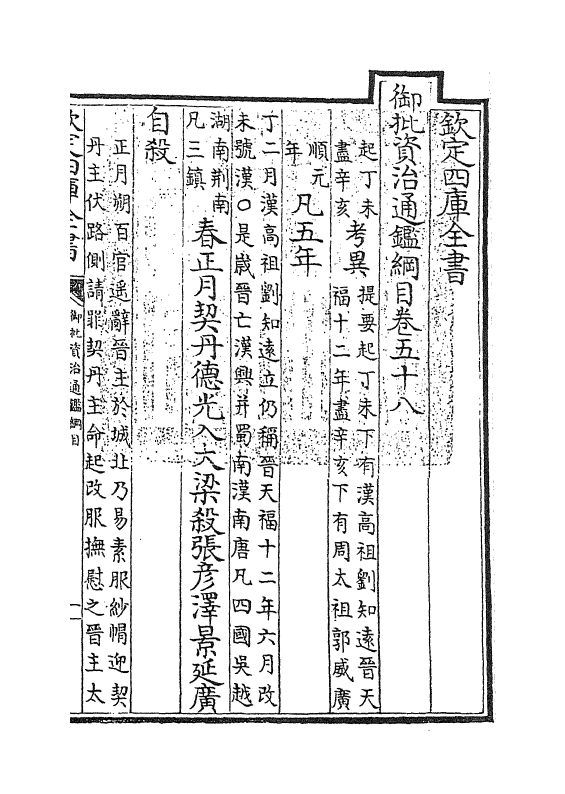 欽定四庫全書
御批資治通鑑綱目卷五十八
起丁未
盡辛亥
考異
提要起丁未下有漢高祖劉知遠晉天
福十二年盡辛亥下有周太祖郭威廣
順元
年
凡五年
丁二月漢高祖劉知遠立仍稱晉天福十二年六月改
未號漢○是歲晉亡漢興并蜀南漢南唐凡四國吳越
湖南荆南
凡三鎮
春正月契丹德光入大梁殺張彥澤景延廣
自殺
正月朔百官遥辭晉主於城北乃易素服紗帽迎契
丹主伏路側請罪契丹主命起改服撫慰之晉主太
欽定四庫全書
御批資治通鑑綱目
一